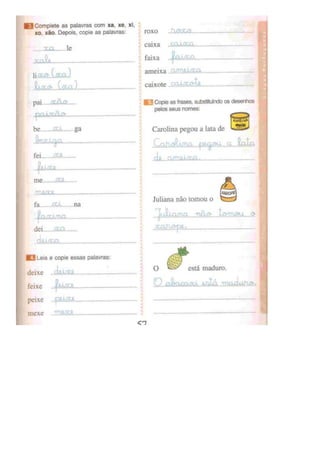 3 Complete as palavras com xa, xe, xi,
xo, xão. Depois, copie as palavras:
xa le
xale
lixo (xa)
lixo (xa)
pai xão
paixão
be xi ga
bexiga
fei xe
feixe
me xe
mexe
fa xi na
faxina
dei xa
deixa
4 Leia e copie essas palavras:
deixe deixe
feixe feixe
peixe peixe
mexe mexe
roxo roxo
caixa caixa
faixa faixa
ameixa ameixa
caixote caixote
5 Copie as frases, substituindo os desenhos
pelos seus nomes:
Carolina pegou a lata de
Carolina pegou a lata
de ameixa.
Juliana não tomou o
XAROPE
Juliana não tomou o
xarope.
O está maduro.
O abacaxi está maduro.
57